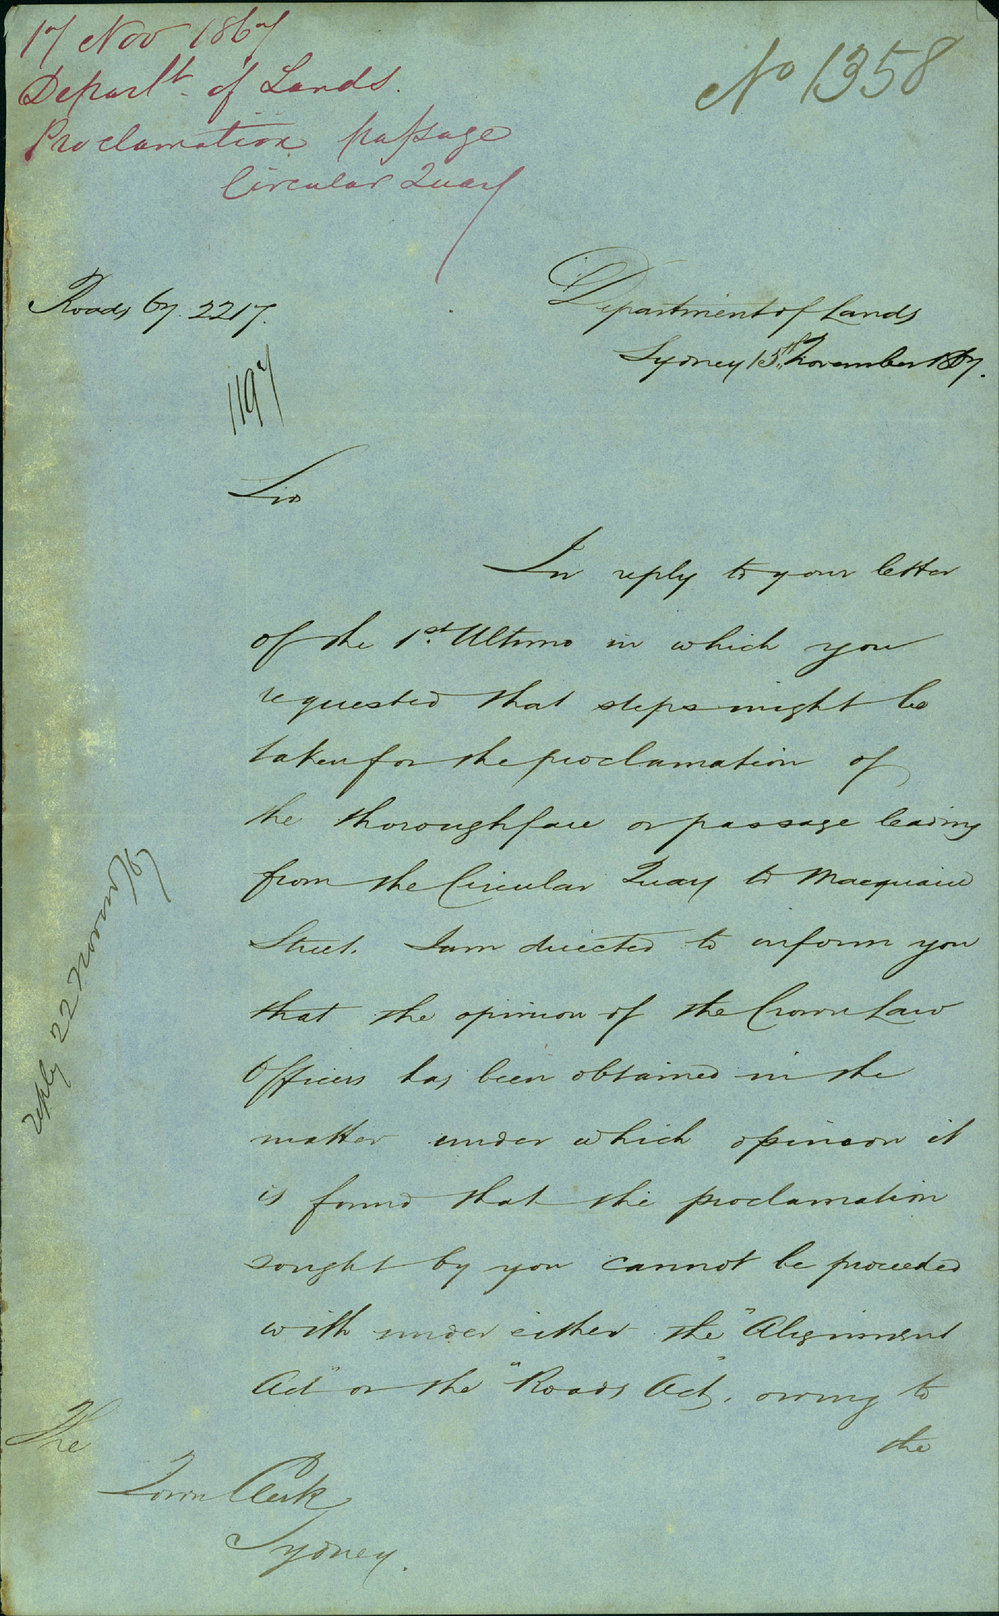 17 Nov 1867
Departt. of Lands.
Proclamation passage
Circular Quay
No 1358
Roads 67. 2217.
Department of Lands
Sydney 15th November 1867.
1197
Sir
In reply to your letter
of the 1st. Ultimo in which you
requested that steps might be
taken for the proclamation of
the thoroughfare or passage leading
from the Circular Quay to Macquarie
Street. I am directed to inform you
that the opinion of the Crown Law
Officers has been obtained in the
matter under which opinion it
is found that the proclamation
sought by you cannot be proceeded
with under either the "Alignment
Act" or the "Roads Act", owing to
the
reply 22 Novem/67
The
Town Clerk
Sydney.